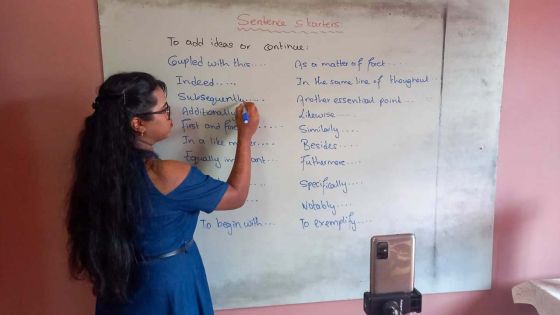 Sentence starters
To add ideas or continue:
Coupled with this....
Indeed.....
Subsequently.....
Additionally
First and
In a like
Equally
To begin with....
As a matter of fact....
In the same line of thoughout...
Another essential point....
Likewise....
Similarly....
Besides....
Futhermore....
Specifically....
Notably....
To exemplify....